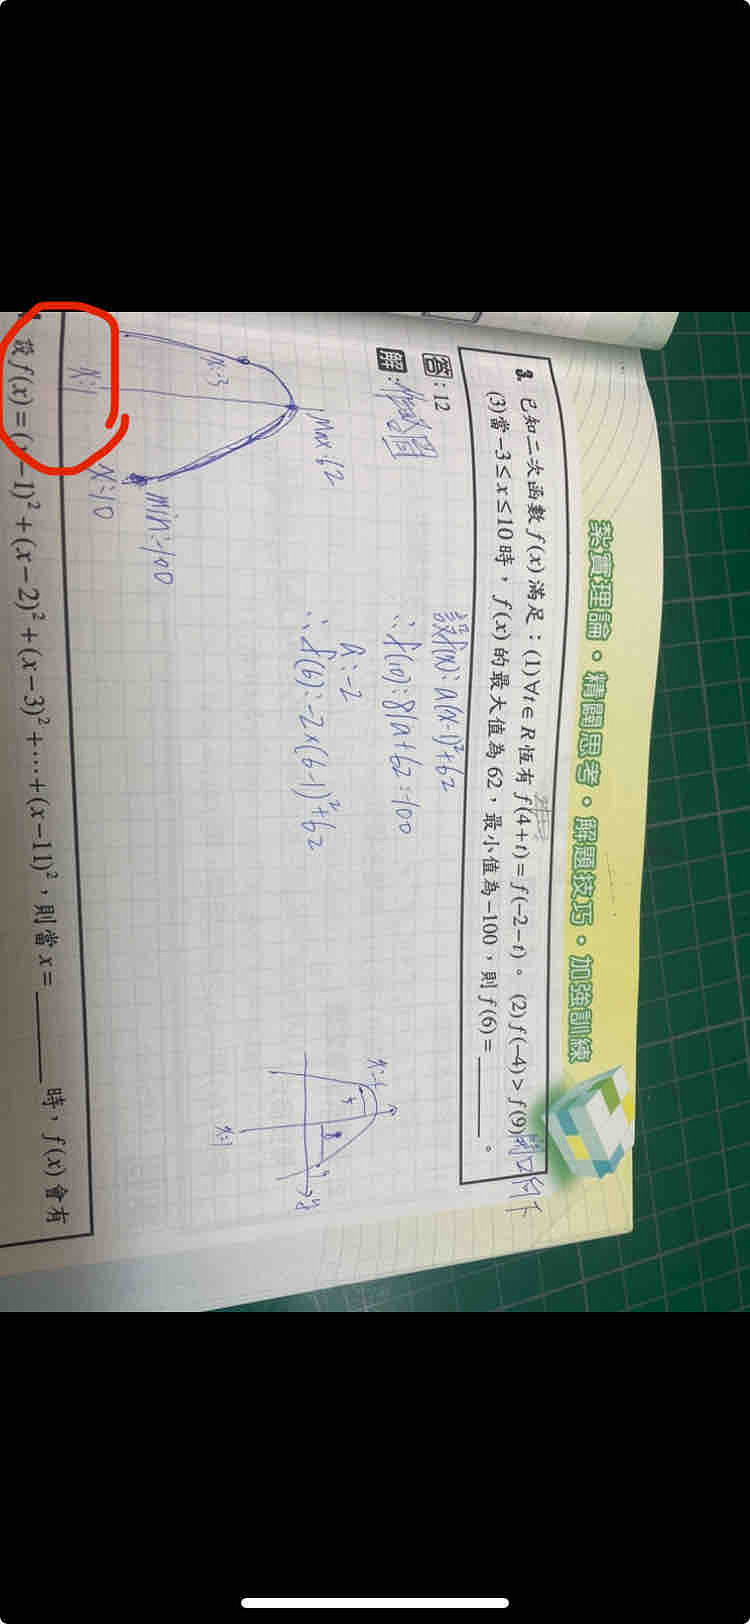 紮實理論·精闢思考·解題技巧·加強訓練
3. 已知二次函數 f(x) 滿足：(1)∀t∈R 恆有 f(4+t)=f(-2-t)。 (2) f(-4)>f(9) 開口向下
(3)當 -3≤x≤10 時，f(x) 的最大值為 62，最小值為 -100，則 f(6)=______。
答：12
解：
設f(x)=a(x-1)²+62
∴f(10)=81a+62=-100
a=-2
∴f(6)=-2×(6-1)²+62
Max=62
x=-3
x=1
min=-100
x=10
x=1
設 f(x)=(x-1)²+(x-2)²+(x-3)²+⋯+(x-11)²，則當 x=______ 時，f(x) 會有